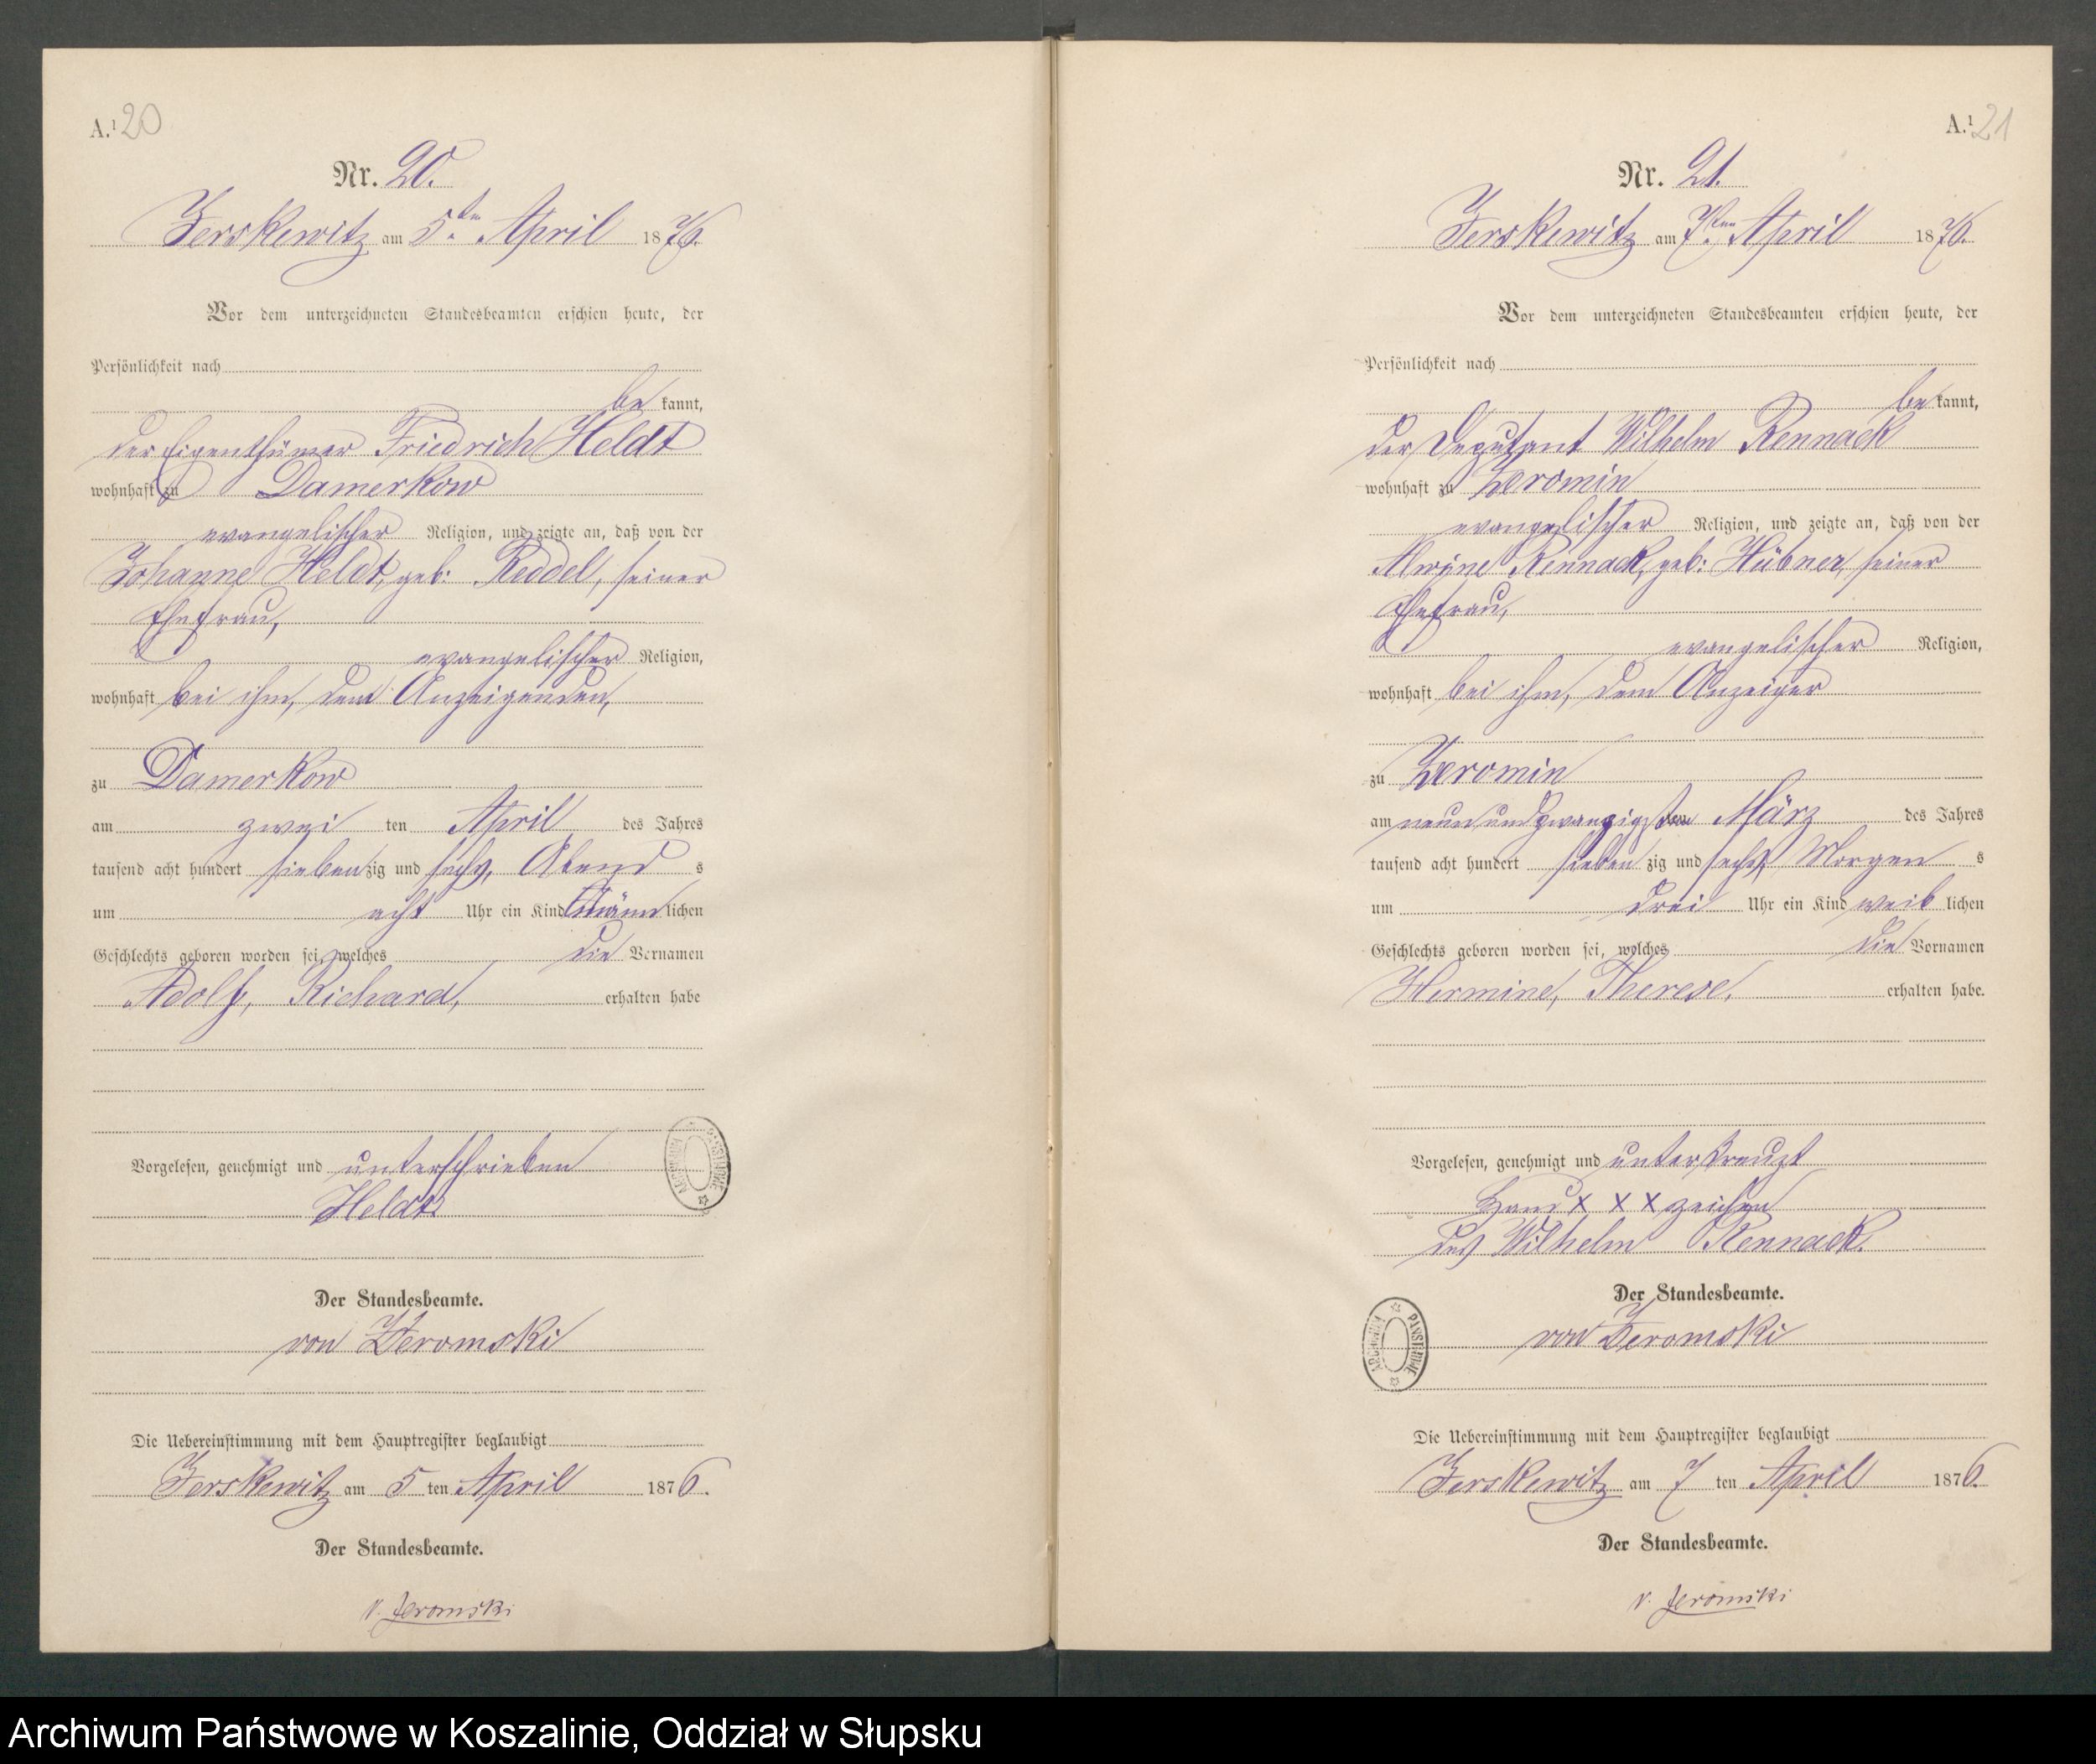 A.¹ 20
Nr. 20.
Jerskewitz am 5ten April 1876.
Vor dem unterzeichneten Standesbeamten erschien heute, der
Persönlichkeit nach
be kannt,
der Eigenthümer Friedrich Heldt
wohnhaft zu Damerkow
evangelischer Religion, und zeigte an, daß von der
Johanne Heldt, geb: Reddel, seiner
Ehefrau,
evangelischer Religion,
wohnhaft bei ihm, dem Anzeigenden,
zu Damerkow
am zwei ten April des Jahres
tausend acht hundert sieben zig und sechs, Abend s
um acht Uhr ein Kind männ lichen
Geschlechts geboren worden sei, welches die Vornamen
Adolf, Richard, erhalten habe
Vorgelesen, genehmigt und unterschrieben
Heldt.
Der Standesbeamte.
von Jeromski
Die Uebereinstimmung mit dem Hauptregister beglaubigt
Jerskewitz am 5 ten April 1876.
Der Standesbeamte.
v. Jeromski
ARCHIWUM PAŃSTWOWE
A.¹ 21
Nr. 21.
Jerskewitz am 7ten April 1876.
Vor dem unterzeichneten Standesbeamten erschien heute, der
Persönlichkeit nach
be kannt,
der Deputant Wilhelm Rennack
wohnhaft zu Zeromin
evangelischer Religion, und zeigte an, daß von der
Alwine Rennack, geb: Hübner, seiner
Ehefrau,
evangelischer Religion,
wohnhaft bei ihm, dem Anzeiger
zu Zeromin
am neunundzwanzigsten März des Jahres
tausend acht hundert sieben zig und sechs, Morgen s
um drei Uhr ein Kind weib lichen
Geschlechts geboren worden sei, welches die Vornamen
Hermine, Therese, erhalten habe.
Vorgelesen, genehmigt und unterkreuzt
Hand x x x zeichen
des Wilhelm Rennack.
Der Standesbeamte.
von Jeromski
Die Uebereinstimmung mit dem Hauptregister beglaubigt
Jerskewitz am 7 ten April 1876.
Der Standesbeamte.
v. Jeromski
ARCHIWUM PAŃSTWOWE
Archiwum Państwowe w Koszalinie, Oddział w Słupsku